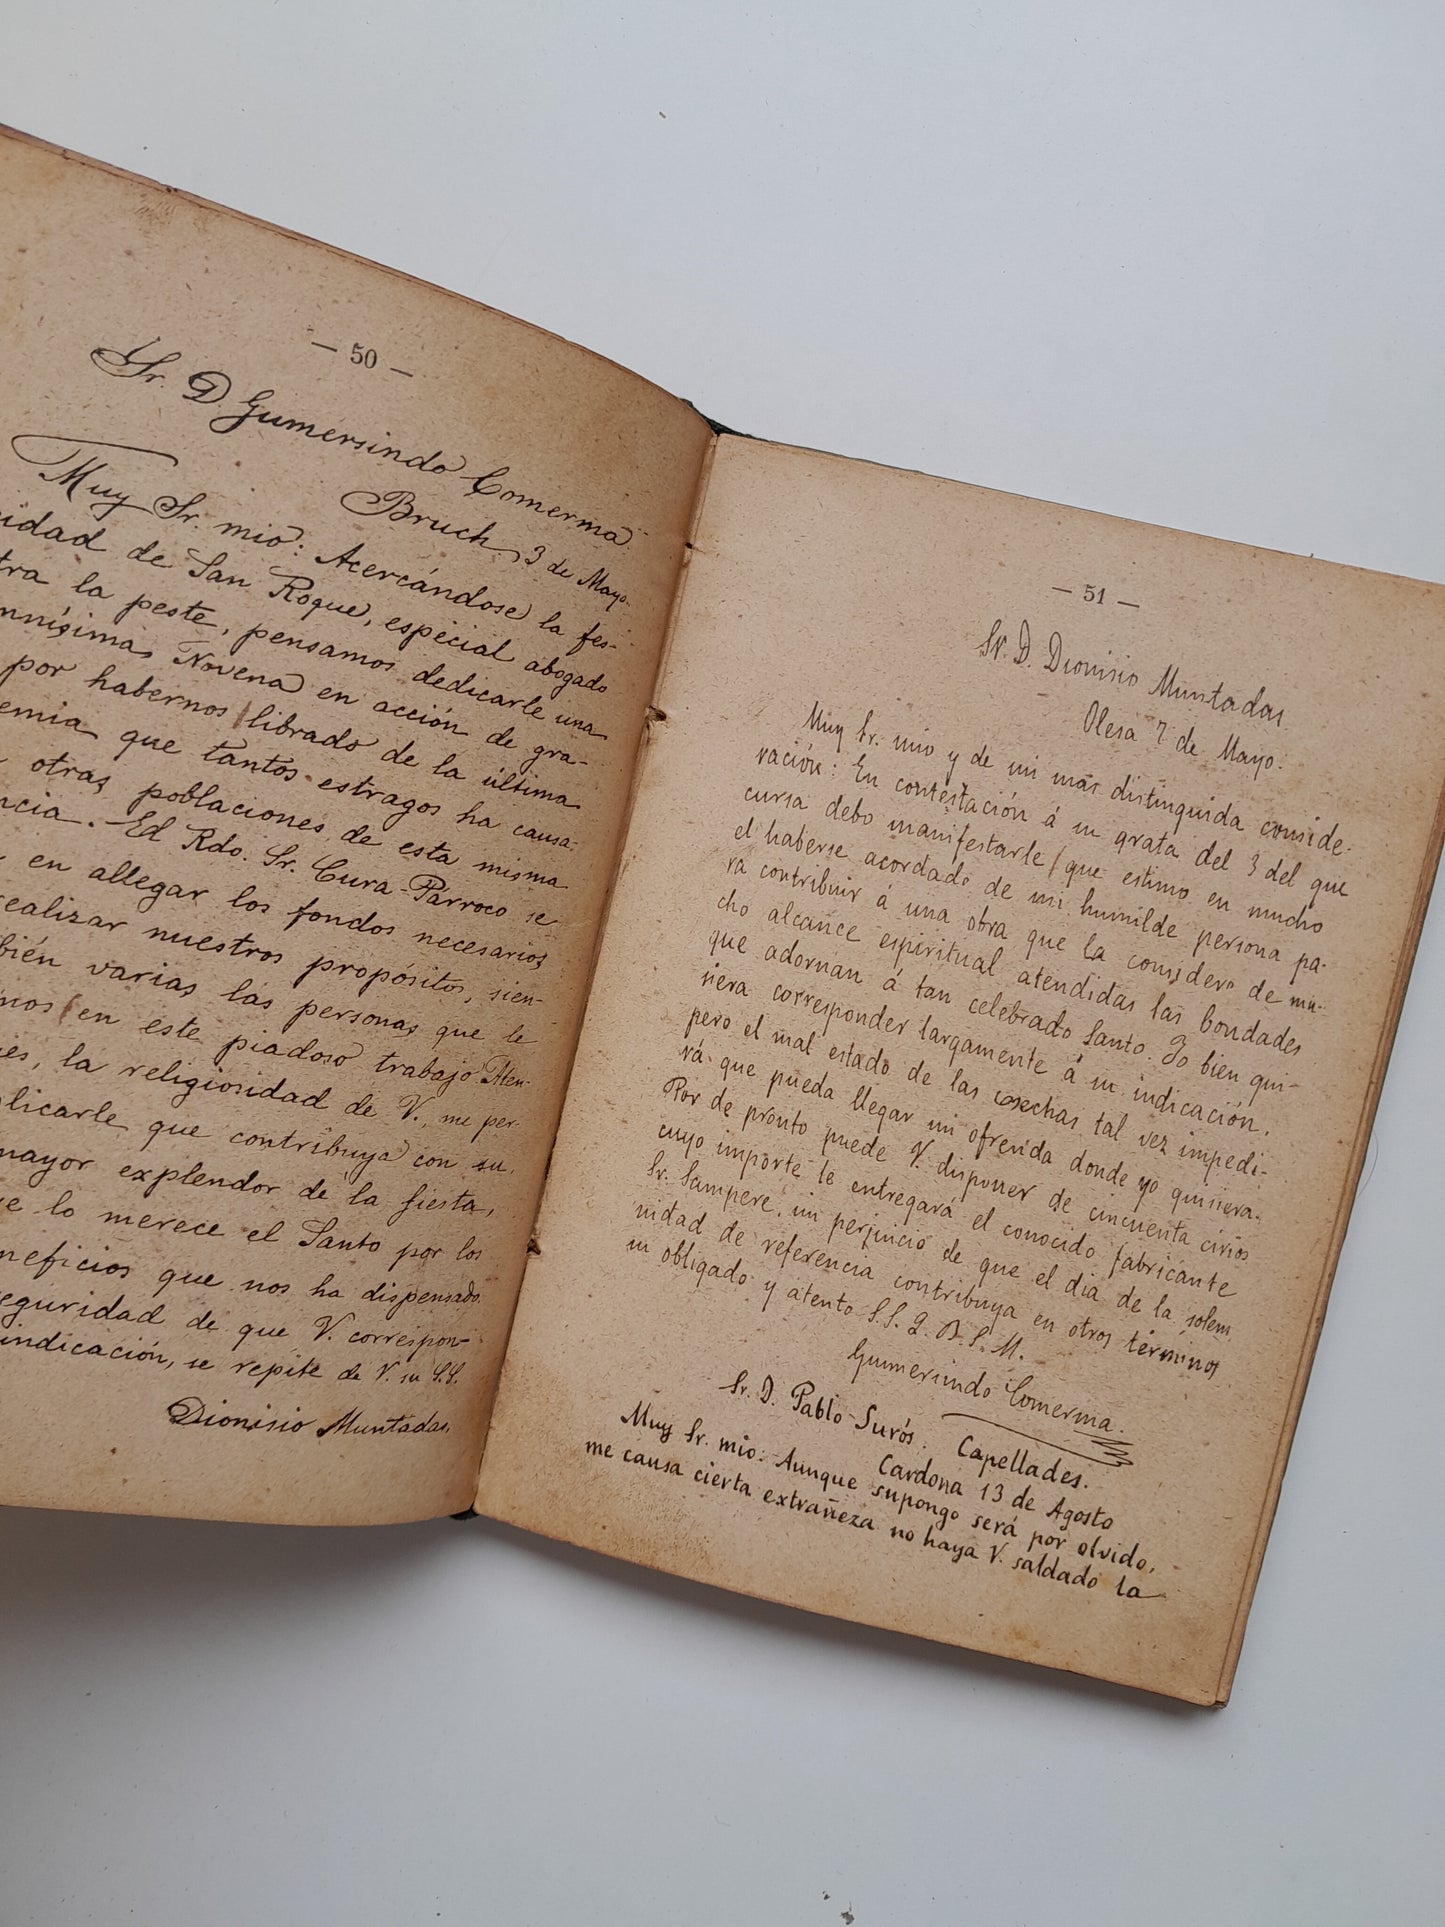 — 50 —
Sr. D. Gumersindo Comerma
Bruch 3 de Mayo.
Muy Sr. mio: Acercándose la fes-
idad de San Roque, especial abogado
tra la peste, pensamos dedicarle una
mnísima Novena en acción de gra-
por habernos librado de la última
emia que tantos estragos ha causa-
otras poblaciones de esta misma
ncia. El Rdo. Sr. Cura-Párroco se
en allegar los fondos necesarios
ealizar nuestros propósitos, sien-
bién varias las personas que le
mos en este piadoso trabajo. Aten-
es, la religiosidad de V., me per-
licarle que contribuya con su
mayor explendor de la fiesta,
e lo merece el Santo por los
neficios que nos ha dispensado
eguridad de que V. correspon-
indicación, se repite de V. su S.S.
Dionisio Muntadas.
— 51 —
Sr. D. Dionisio Muntadas.
Olesa 7 de Mayo.
Muy Sr. mio y de mi más distinguida conside-
ración: En contestación á su grata del 3 del que
cursa debo manifestarle que estimo en mucho
el haberse acordado de mi humilde persona pa-
ra contribuir á una obra que la considero de mu-
cho alcance espiritual atendidas las bondades
que adornan á tan celebrado Santo. Yo bien qui-
siera corresponder largamente á su indicación.
pero el mal estado de las cosechas tal vez impedi-
rá que pueda llegar mi ofrenda donde yo quisiera.
Por de pronto puede V. disponer de cincuenta cirios
cuyo importe le entregará el conocido fabricante
Sr. Sampere, sin perjuicio de que el dia de la solem
nidad de referencia contribuya en otros términos
su obligado y atento S.S. Q. B. S. M.
Gumersindo Comerma.
Sr. D. Pablo Surós. Capellades.
Cardona 13 de Agosto
Muy Sr. mio: Aunque supongo será por olvido,
me causa cierta extrañeza no haya V. saldado la